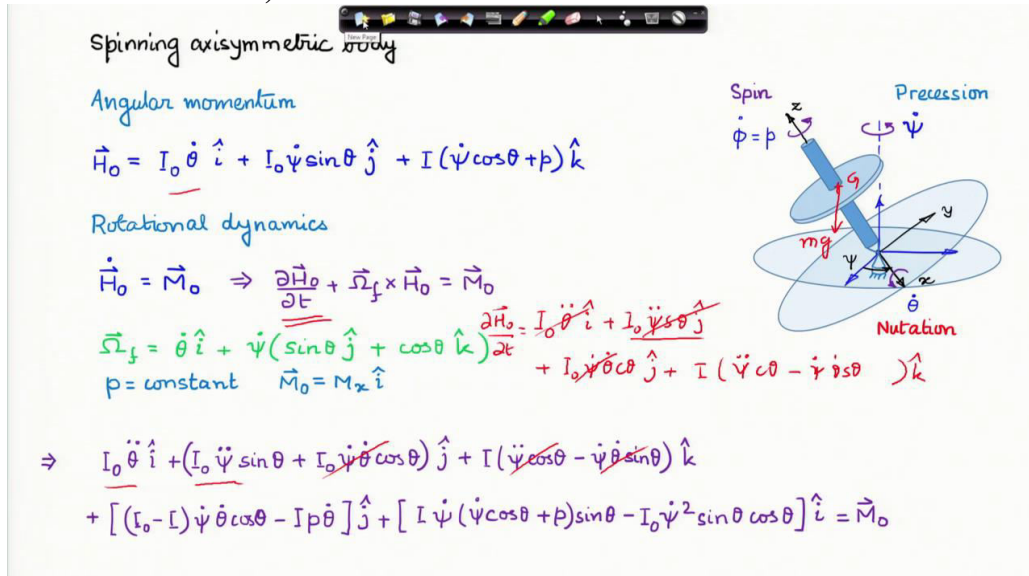 New Page
Spinning axisymmetric body
Angular momentum
H⃗₀ = I₀ θ̇ î + I₀ψ̇ sinθ ĵ + I(ψ̇cosθ+p)k̂
Rotational dynamics
H⃗̇₀ = M⃗₀ ⇒ ∂H⃗₀/∂t + Ω⃗_f × H⃗₀ = M⃗₀
Ω⃗_f = θ̇ î + ψ̇(sinθ ĵ + cosθ k̂)
∂H⃗₀/∂t = I₀ θ̈ î + I₀ ψ̈sθ ĵ
+ I₀ψ̇θ̇cθ ĵ + I(ψ̈cθ − ψ̇θ̇sθ )k̂
p = constant M⃗₀ = Mₓ î
⇒ I₀ θ̈ î + (I₀ ψ̈ sinθ + I₀ψ̇θ̇cosθ) ĵ + I(ψ̈cosθ − ψ̇θ̇sinθ) k̂
+ [(I₀−I)ψ̇ θ̇cosθ − Ipθ̇]ĵ + [I ψ̇(ψ̇cosθ+p)sinθ − I₀ψ̇² sinθ cosθ] î = M⃗₀
Spin
Precession
φ̇ = p
z
ψ̇
G
mg
y
ψ
x
θ̇
Nutation